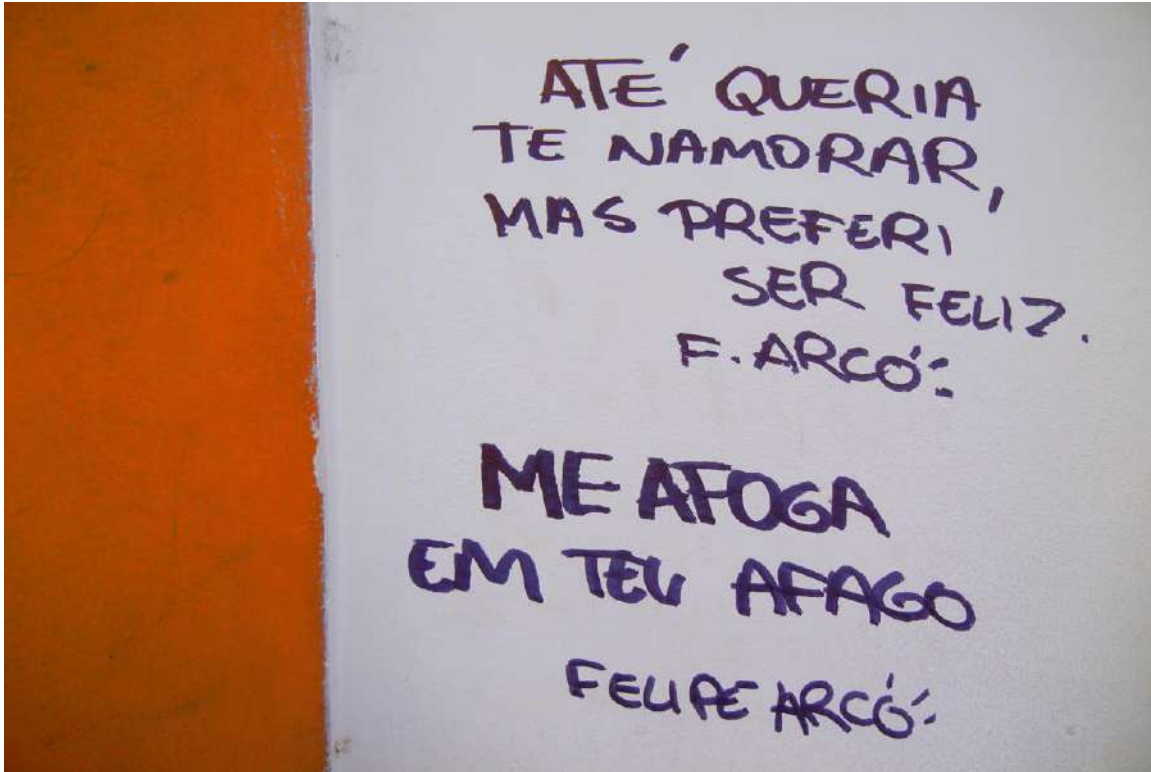 ATÉ QUERIA
TE NAMORAR,
MAS PREFERI
SER FELIZ.
F. ARCÓ:
ME AFOGA
EM TEU AFAGO
FELIPE ARCÓ: